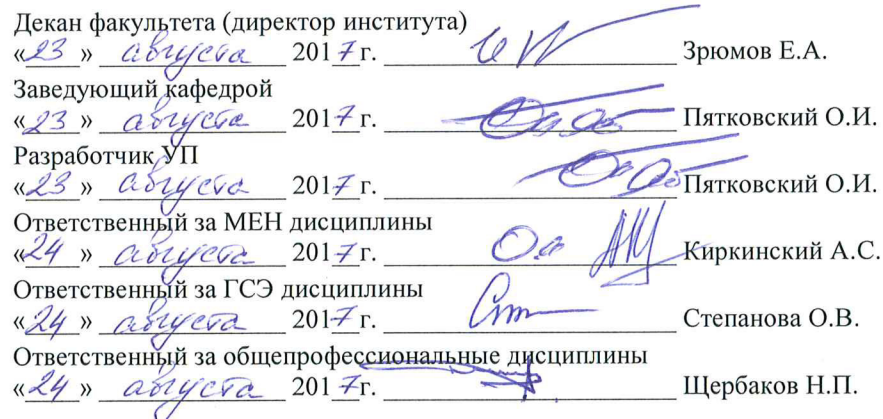 Декан факультета (директор института)
«23» августа 2017г. Зрюмов Е.А.
Заведующий кафедрой
«23» августа 2017г. Пятковский О.И.
Разработчик УП
«23» августа 2017г. Пятковский О.И.
Ответственный за МЕН дисциплины
«24» августа 2017г. Киркинский А.С.
Ответственный за ГСЭ дисциплины
«24» августа 2017г. Степанова О.В.
Ответственный за общепрофессиональные дисциплины
«24» августа 2017г. Щербаков Н.П.